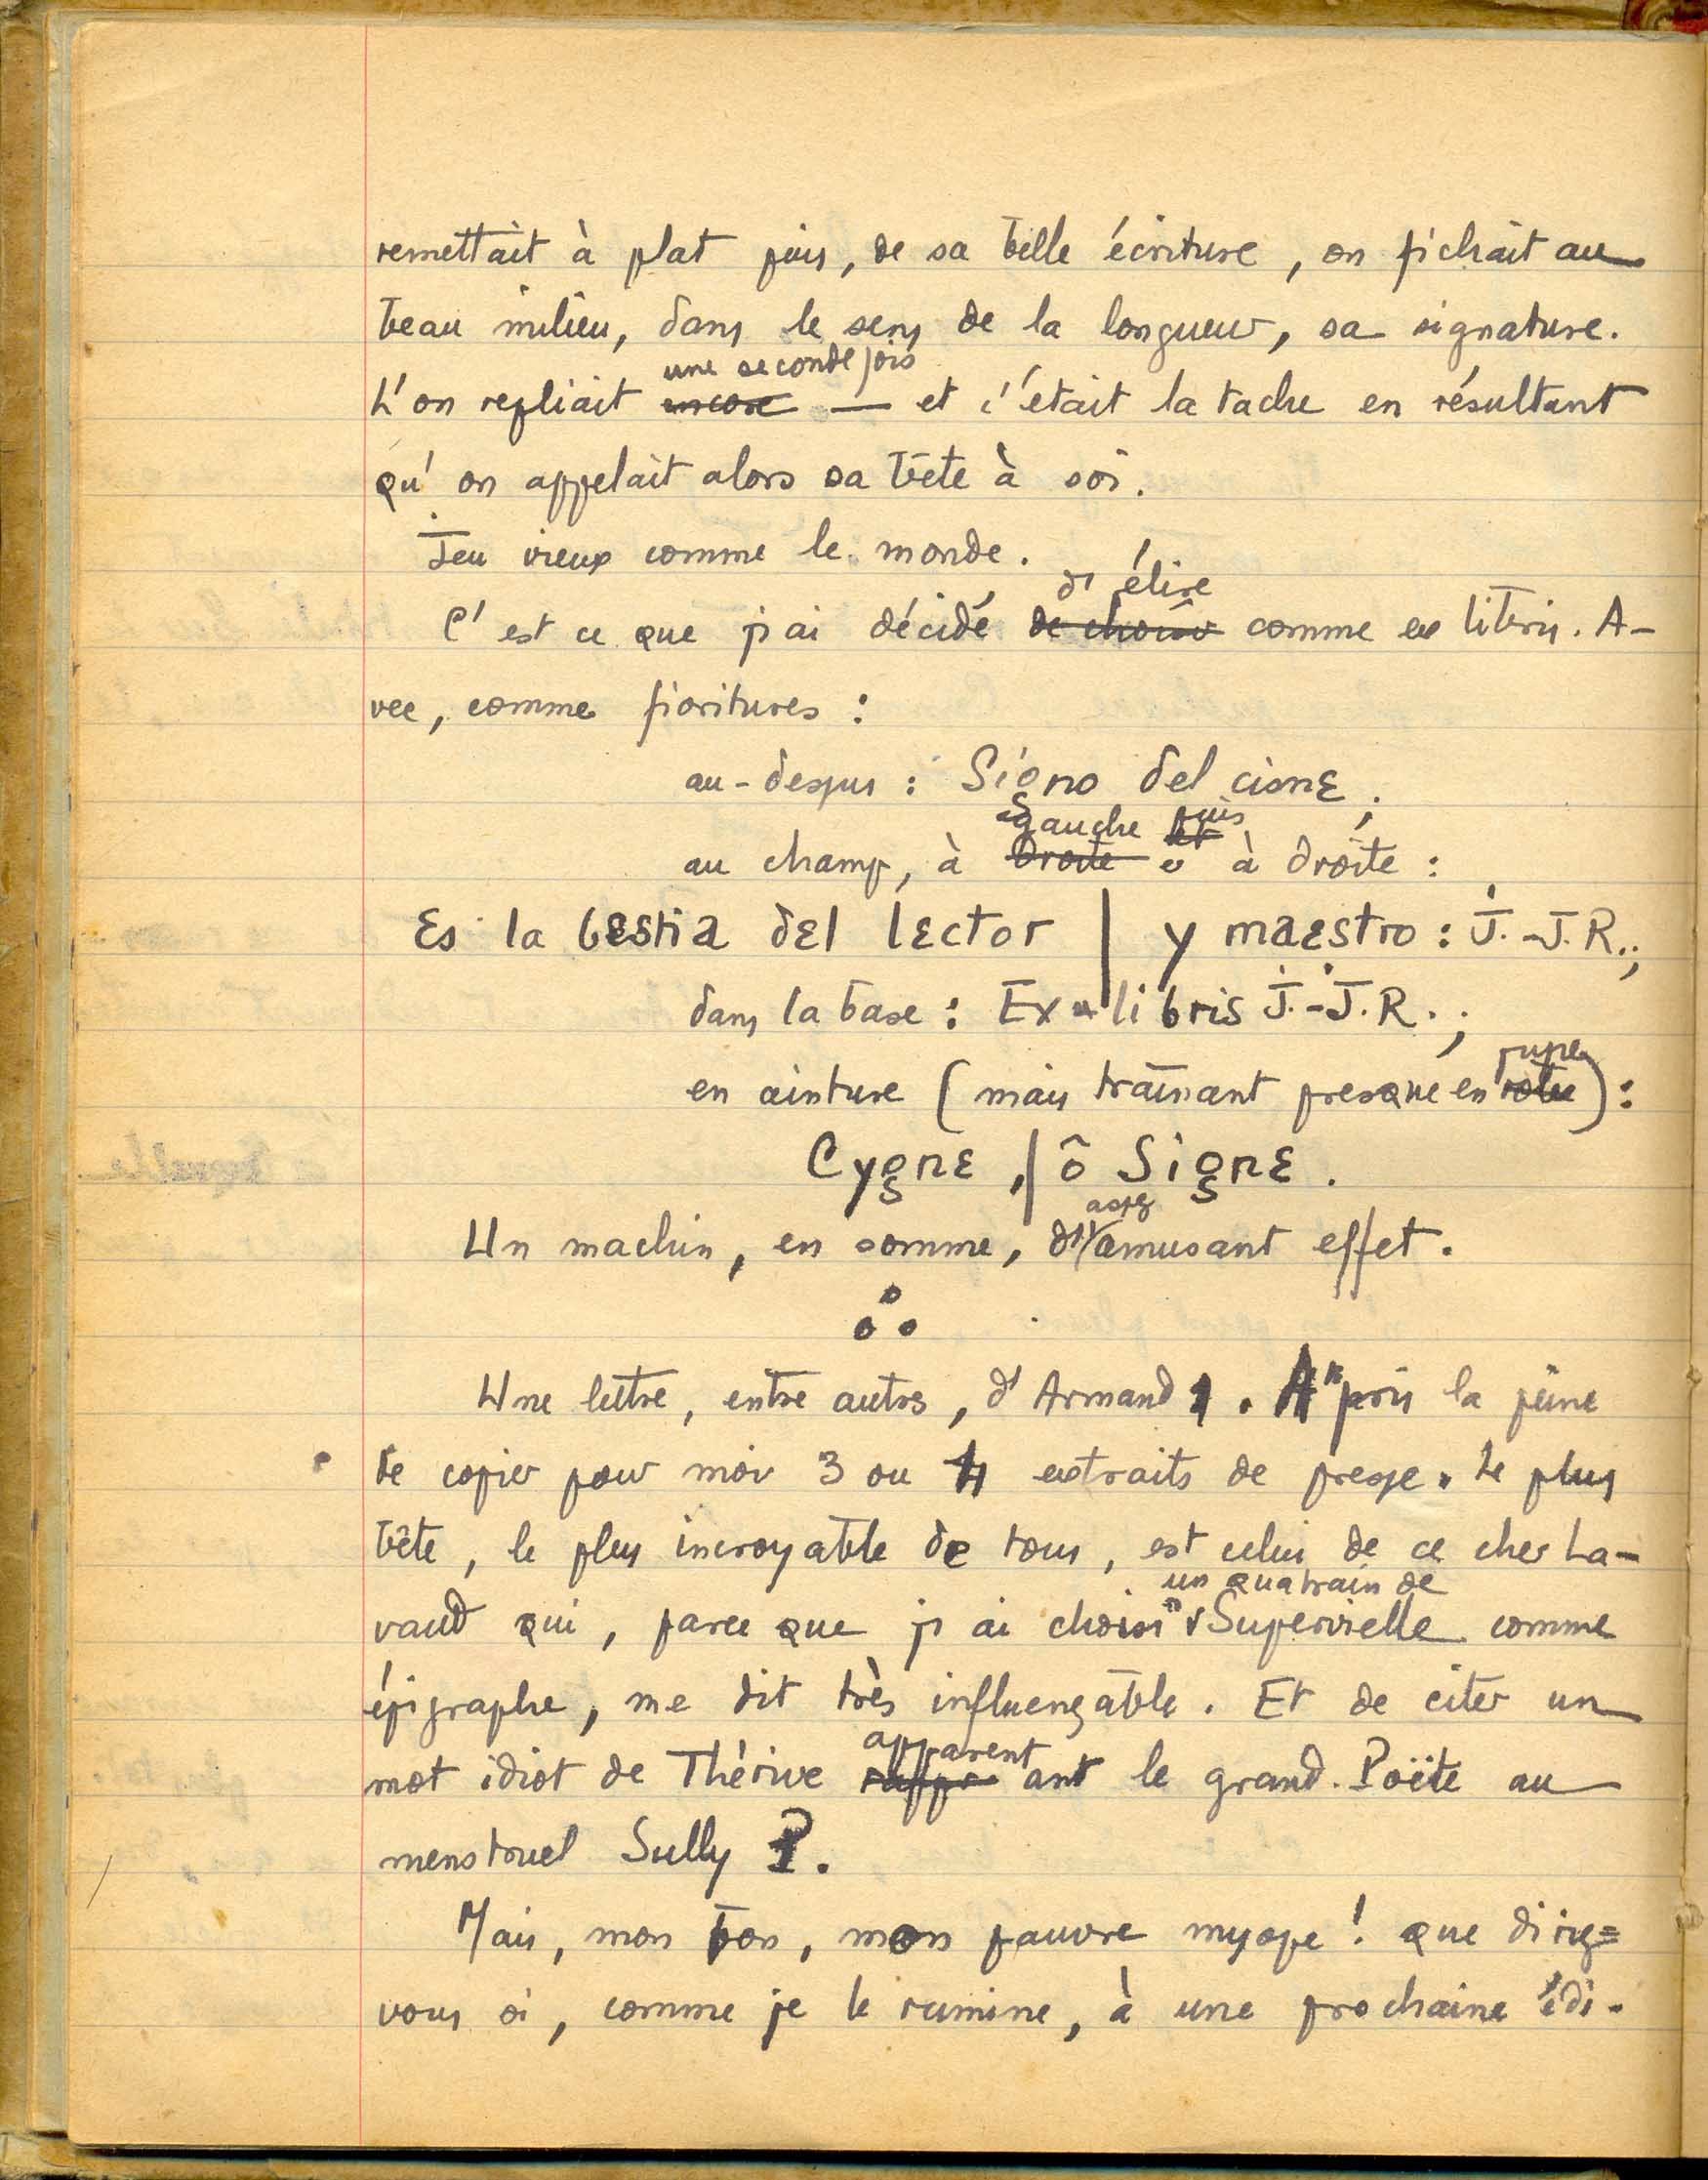 remettait à plat puis, de sa belle écriture, on fichait au
beau milieu, dans le sens de la longueur, sa signature.
une seconde fois
L'on repliait encore — et c'était la tache en résultant
qu'on appelait alors sa bête à soi.
Jeu vieux comme le monde.
d'élire
C'est ce que j'ai décidé de choisir comme ex libris. A-
vec, comme fioritures :
au-dessus : Signo del cisne ;
gauche puis
au champ, à droite et à droite :
Es la bestia del lector | y maestro : J.-J. R. ;
dans la base : Ex-libris J.-J. R. ;
jupe
en ceinture (mais traînant presque en robe) :
Cygne, | ô Signe.
assez
Un machin, en somme, d'amusant effet.
Une lettre, entre autres, d'Armand 1. A pris la peine
de copier pour moi 3 ou 4 extraits de presse. Le plus
bête, le plus incroyable de tous, est celui de ce cher La-
un quatrain de
vaud qui, parce que j'ai choisi Supervielle comme
épigraphe, me dit très influençable. Et de citer un
apparent
mot idiot de Thérive rappr ant le grand Poëte au
menstruel Sully P.
Mais, mon bon, mon pauvre myope ! que diriez=
vous si, comme je le rumine, à une prochaine édi-